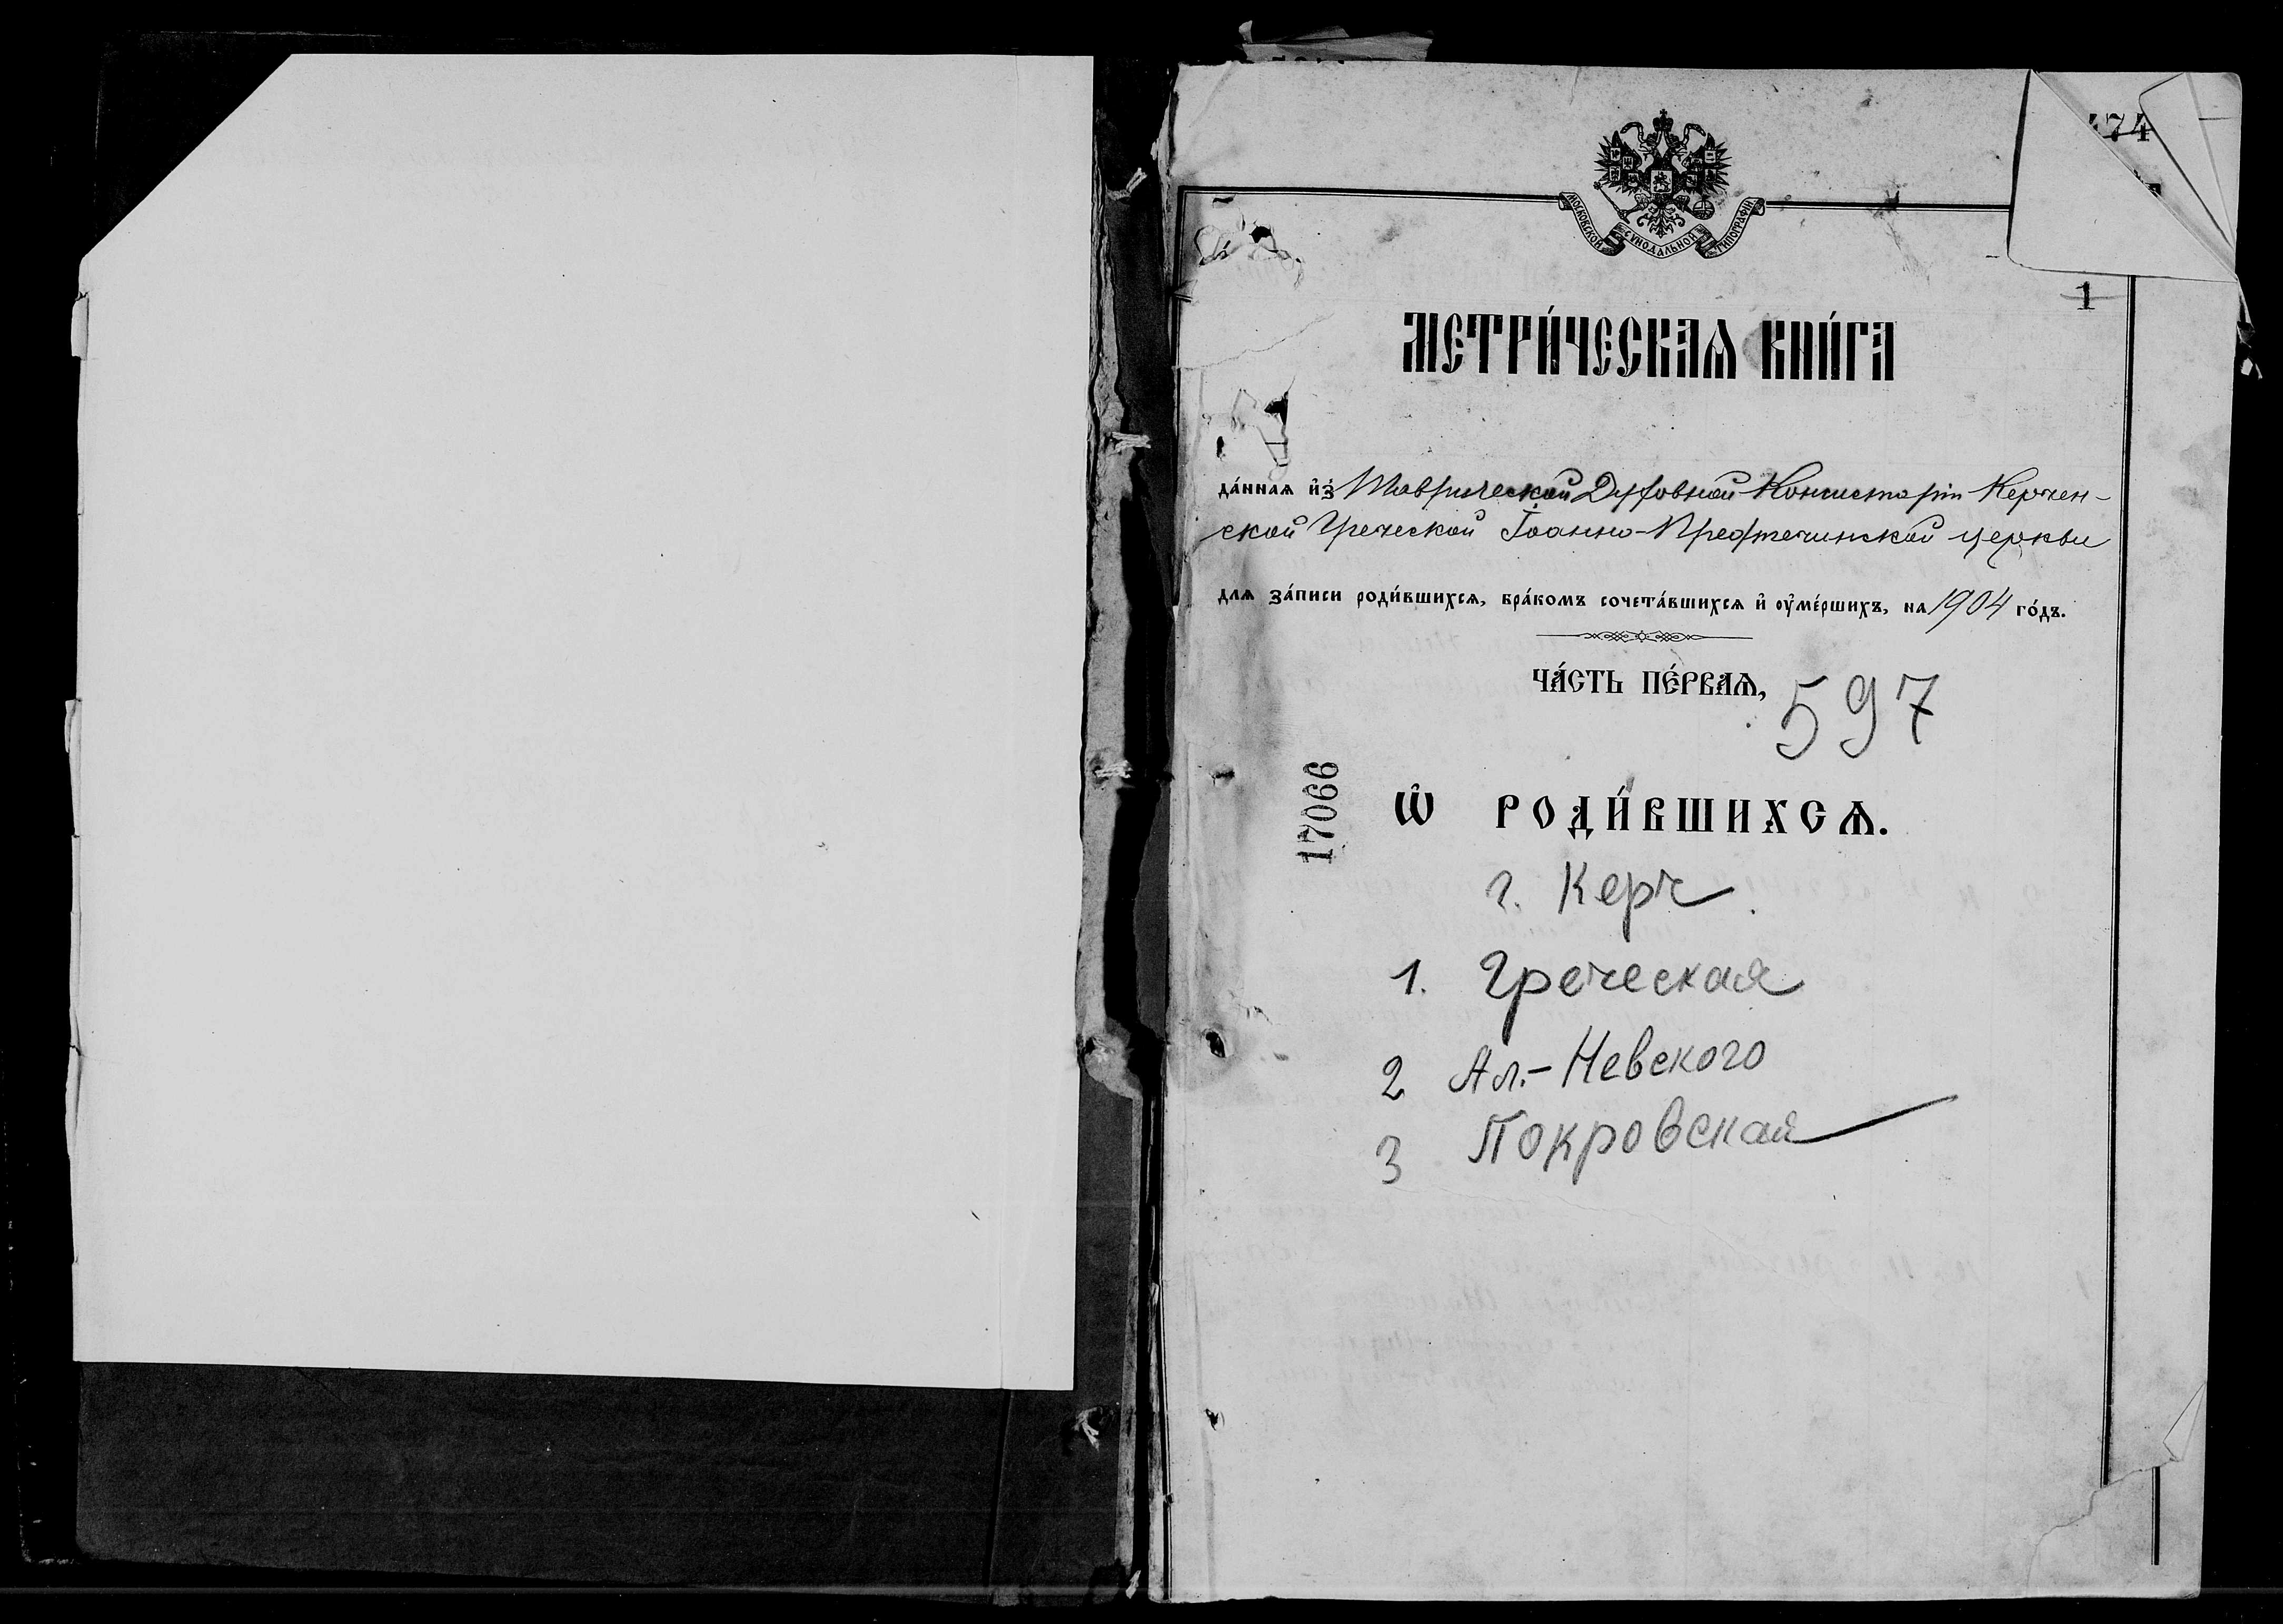 74
МОСКОВСКОЙ СѴНОДАЛЬНОЙ ТИПОГРАФІИ
1
МЕТРИ́ЧЕСКАѦ КНИ́ГА
да́ннаѧ и҆з̾ Таврической Духовной Консисторіи Керчен-
ской Греческой Іоанно-Предтечинской церкви
длѧ за́писи роди́вшихсѧ, бра́комъ сочета́вшихсѧ и҆ ѹ҆ме́ршихъ, на 1904 го́дъ.
ЧА́СТЬ ПЕ́РВАѦ,
597
17066
Ѡ҆ РОДИ́ВШИХСѦ.
г. Керч
1. Греческая
2 Ал.-Невского
3 Покровская